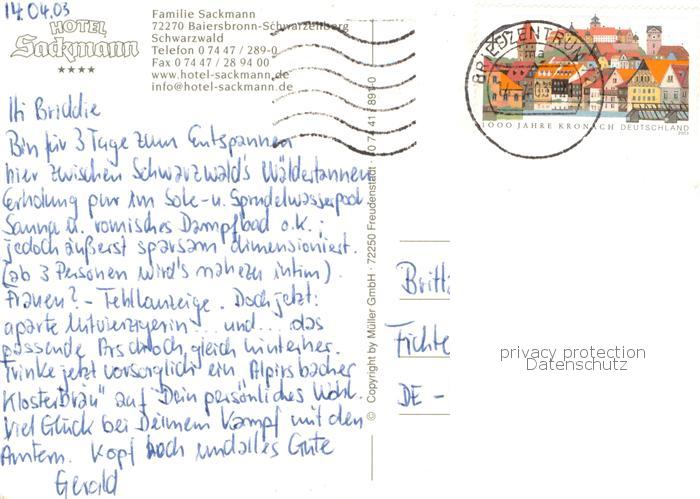 14.04.03
HOTEL
Sackmann
Familie Sackmann
72270 Baiersbronn-Schwarzenberg
Schwarzwald
Telefon 0 74 47 / 289-0
Fax 0 74 47 / 28 94 00
www.hotel-sackmann.de
info@hotel-sackmann.de
Hi Briddie
Bin für 3 Tage zum Entspannen
hier zwischen Schwarzwald's Wäldertannen
Erholung pur im Sole- u. Sprudelwasserpool
Sauna u. römisches Dampfbad o.k.;
jedoch äußerst sparsam dimensioniert.
(ab 3 Personen wird's nahezu intim).
Frauen? - Fehlanzeige. Doch jetzt:
aparte Mitvierzigerin... und.... das
passende Arschloch gleich hinterher.
Trinke jetzt vorsorglich ein Alpirsbacher
Klosterbräu" auf Dein persönliches Wohl.
Viel Glück bei Deinem Kampf mit den
Ämtern. Kopf hoch und alles Gute
Gerald
© Copyright by Müller GmbH · 72250 Freudenstadt · 0 74 41 / 891-0
BRIEFZENTRUM
1000 JAHRE KRONACH DEUTSCHLAND
2003
Britt
Fichte
DE -
privacy protection
Datenschutz